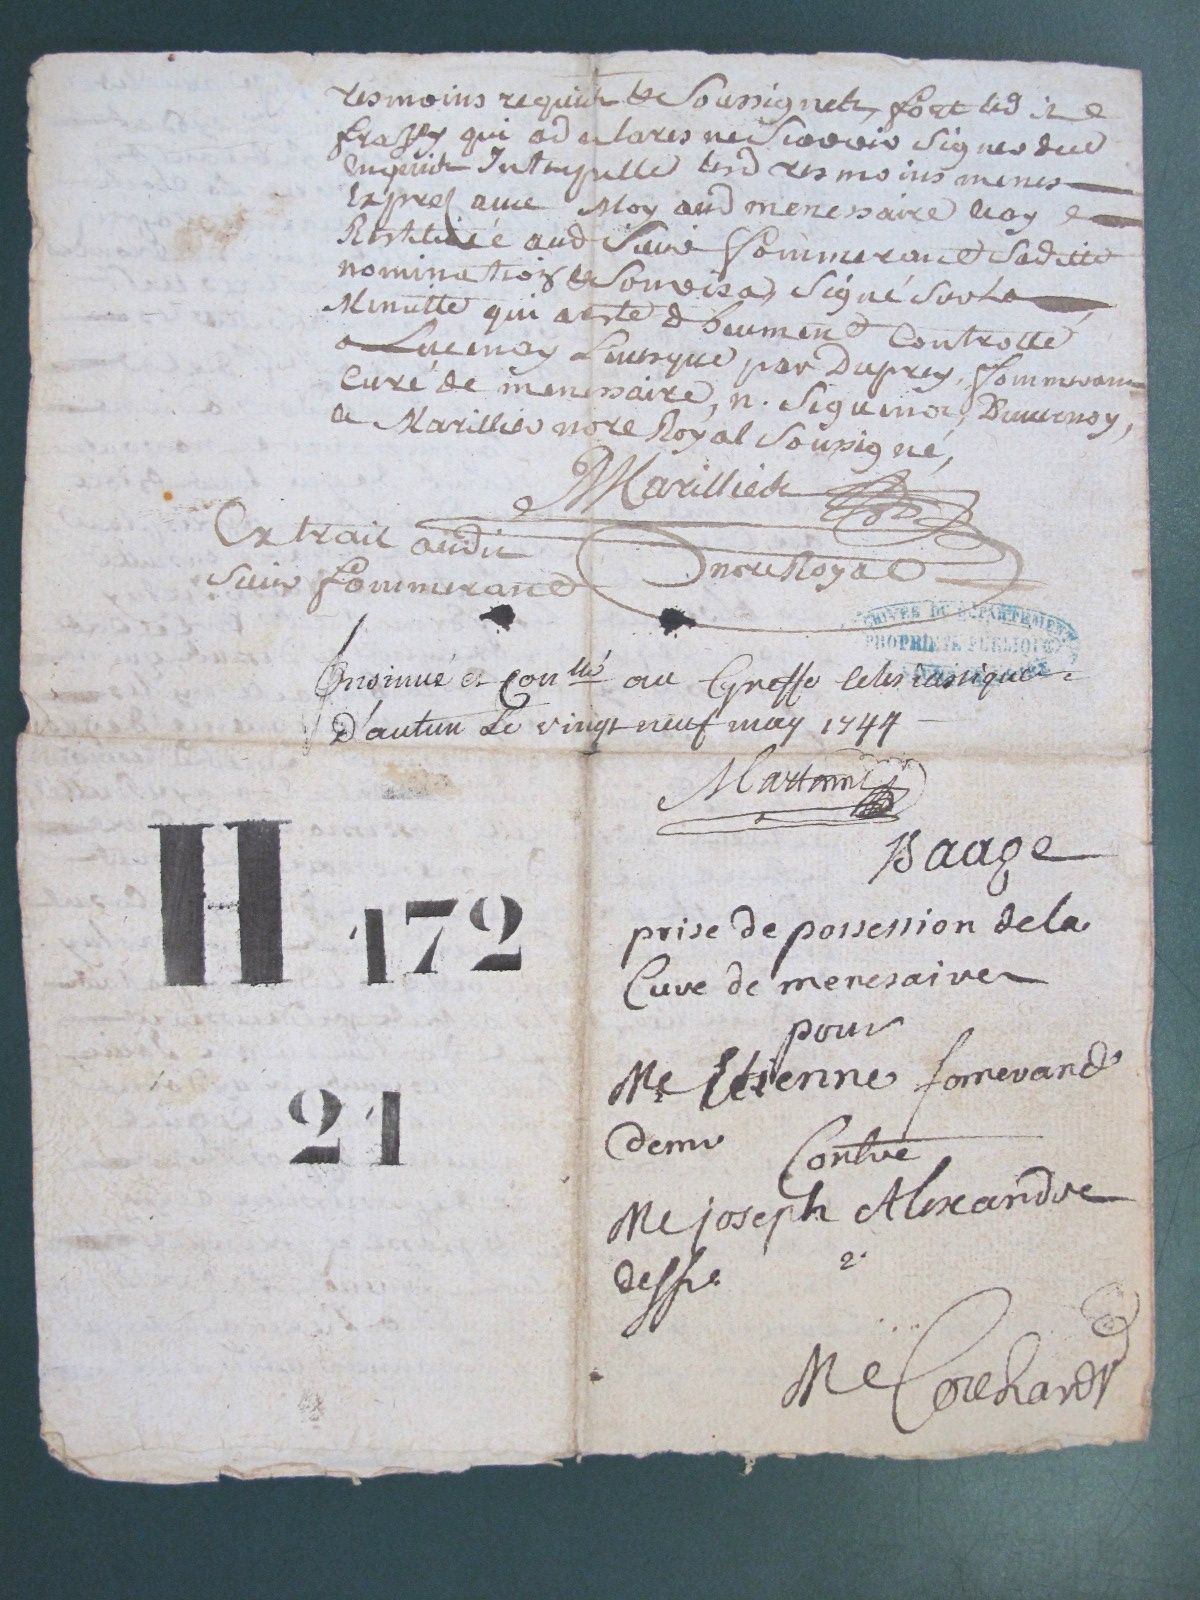 tesmoins requis et Soussignets, fort led it
frassy qui a declarés ne Scavoir signer de ce
enquis Interpellé lesd tesmoins menes
Exprés avec Moy aud menessaire et ay
Restitué aud Sieur Sommerand Sa ditte
nomination et Son visa, Signé Sur La
Minutte qui a esté dheument Controllé
a Lucenay Levesque par Duprey, Sommerand
Curé de menessaire, n. Seguenot, Duvernoy,
et Marillier nore Royal Soussigné,
Marillier
nore Royal
Extrait audit
Sieur Sommerand
ARCHIVES DU DEPARTEMENT
PROPRIÉTÉ PUBLIQUE
Insinué et Conllé au Greffe Eclesiastique
D'autun Le vingt neuf may 1744
Baage
prise de possession de la
Cure de menesaire
pour
Me Etienne somerand
demr
Contre
Me joseph Alexandre
deffr
2.
Me Corehardy
H 172
21